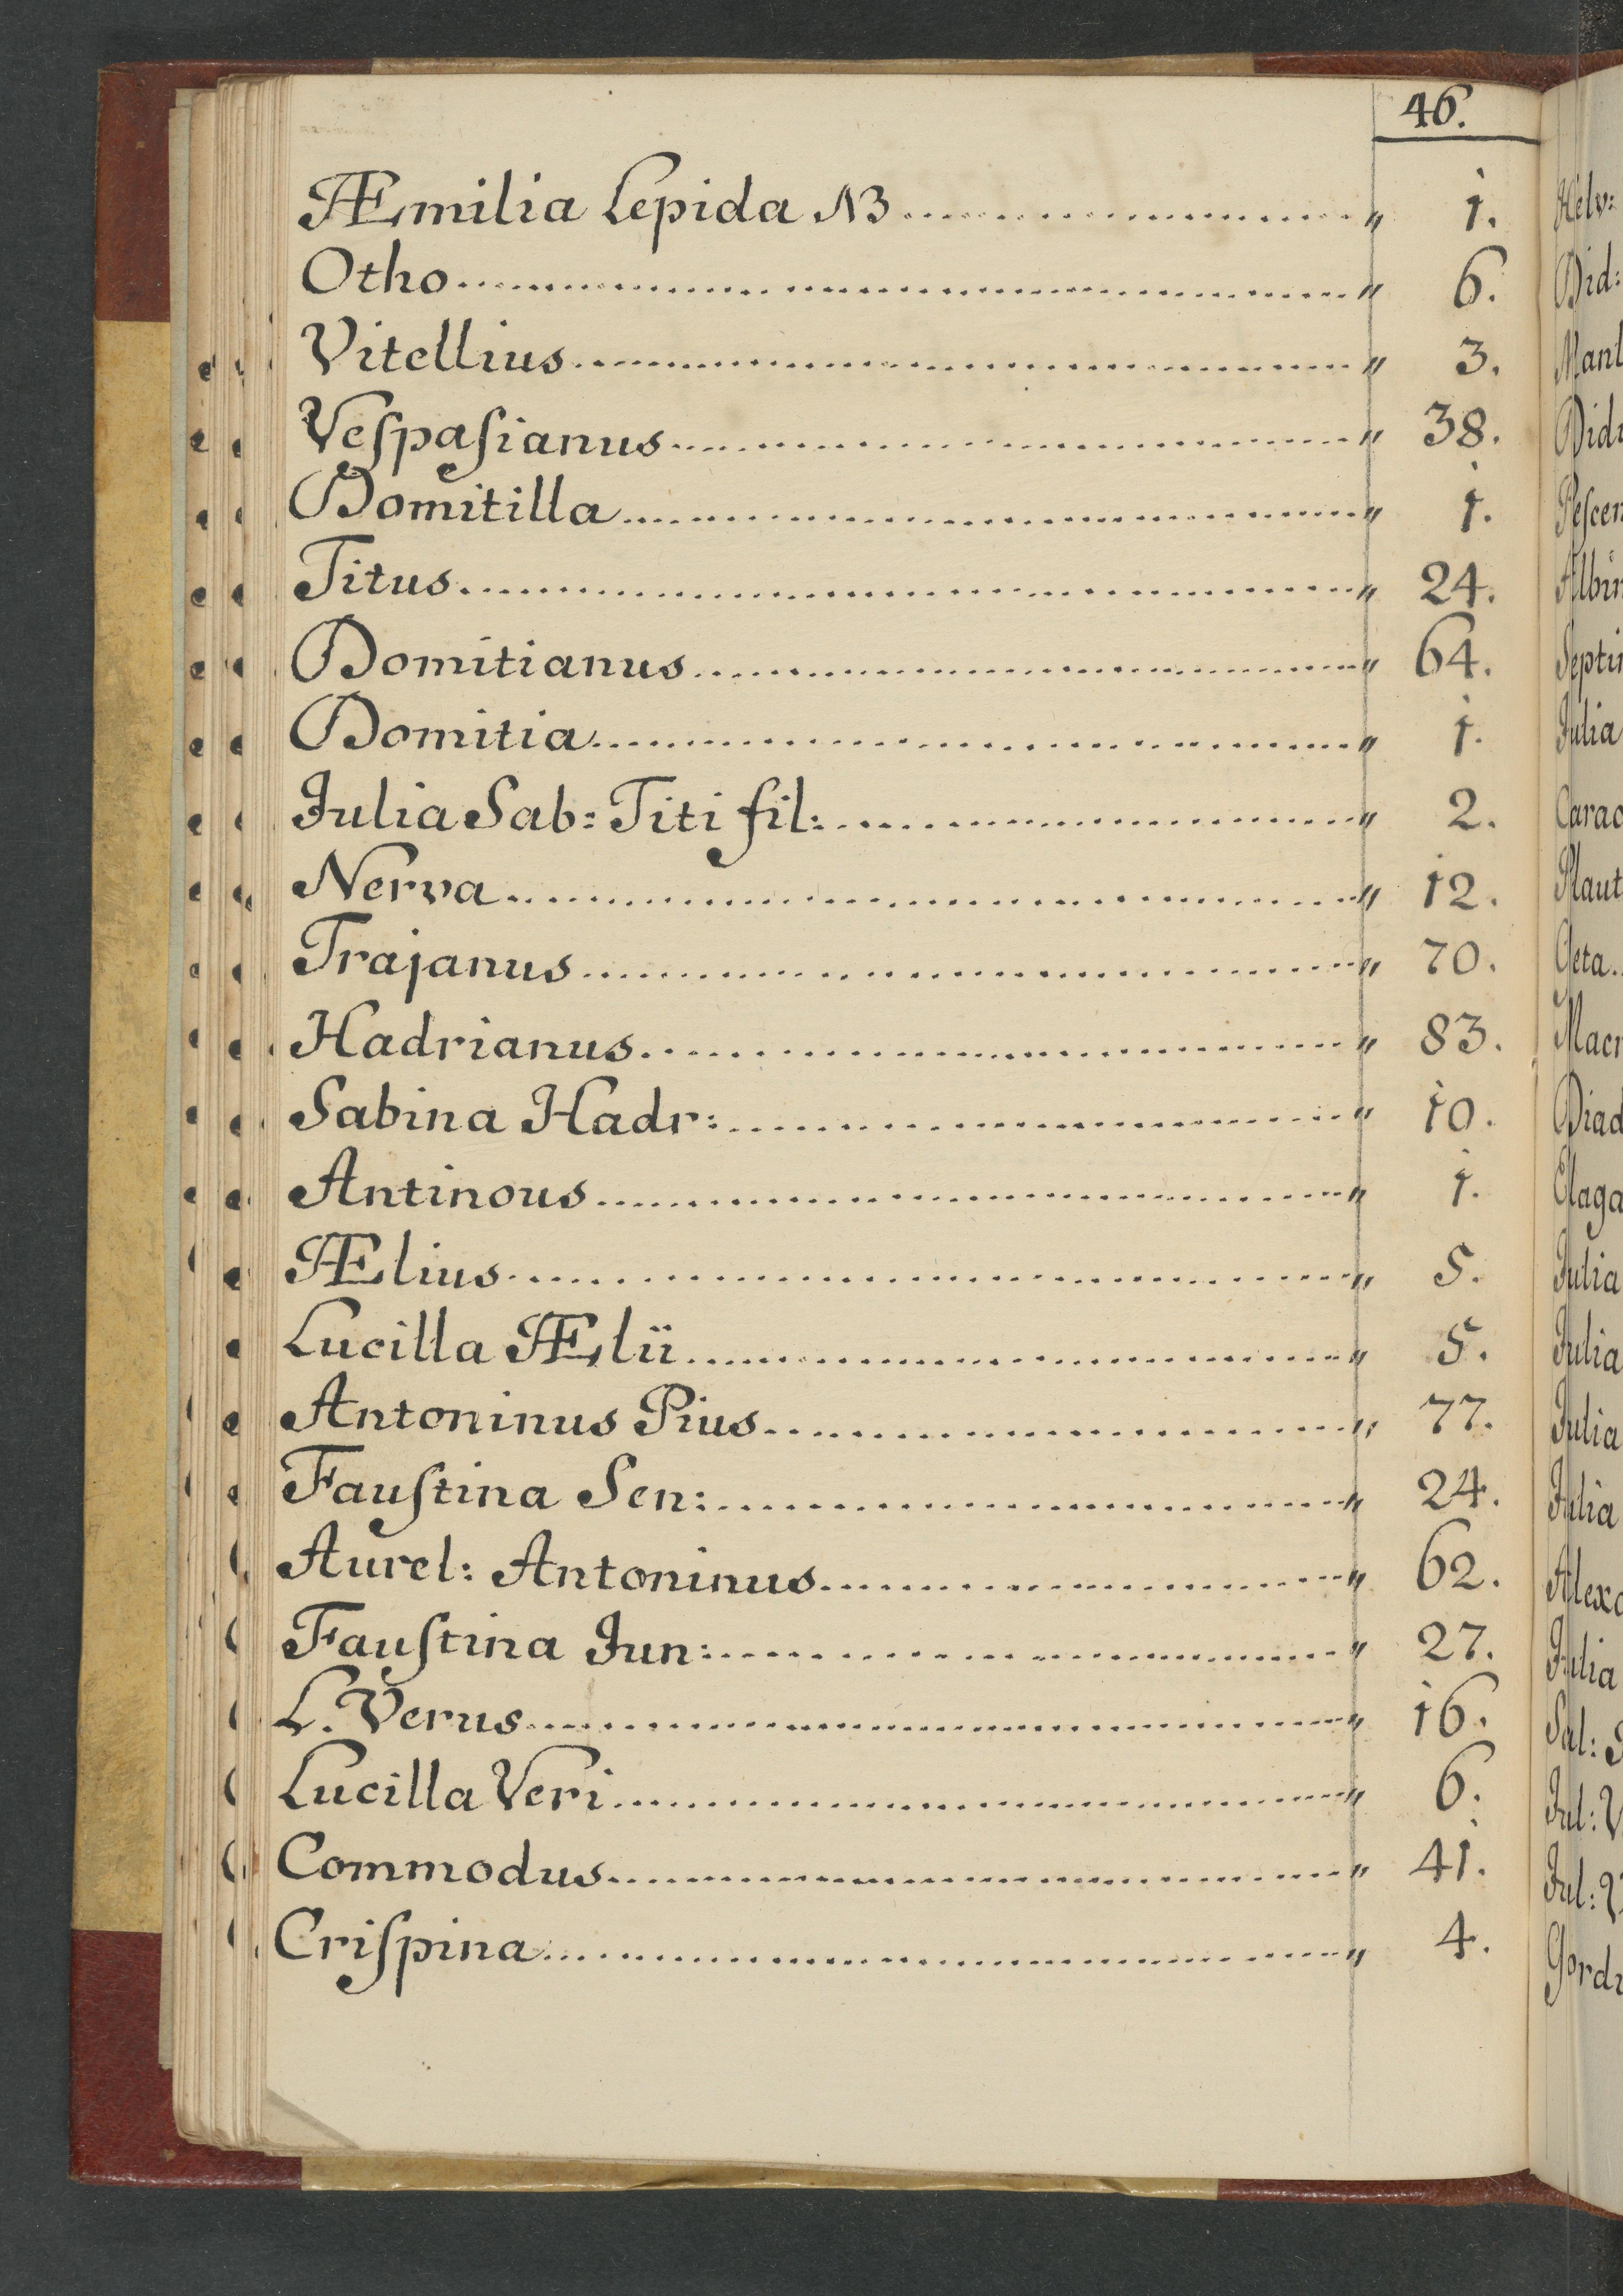 46.
Æmilia Lepida NB ........ " 1.
Otho ........ " 6.
Vitellius ........ " 3.
Veſpaſianus ........ " 38.
Domitilla ........ " 1.
Titus ........ " 24.
Domitianus ........ " 64.
Domitia ........ " 1.
Julia Sab: Titi fil: ........ " 2.
Nerva ........ " 12.
Trajanus ........ " 70.
Hadrianus ........ " 83.
Sabina Hadr: ........ " 10.
Antinous ........ " 1.
Ælius ........ " 5.
Lucilla Ælii ........ " 5.
Antoninus Pius ........ " 77.
Fauſtina Sen: ........ " 24.
Aurel: Antoninus ........ " 62.
Fauſtina Jun: ........ " 27.
L. Verus ........ " 16.
Lucilla Veri ........ " 6.
Commodus ........ " 41.
Criſpina ........ " 4.
Helv:
Did:
Julia
Geta.
Julia
Julia
Julia
Julia
Julia
Sal:
Jul:
Jul: